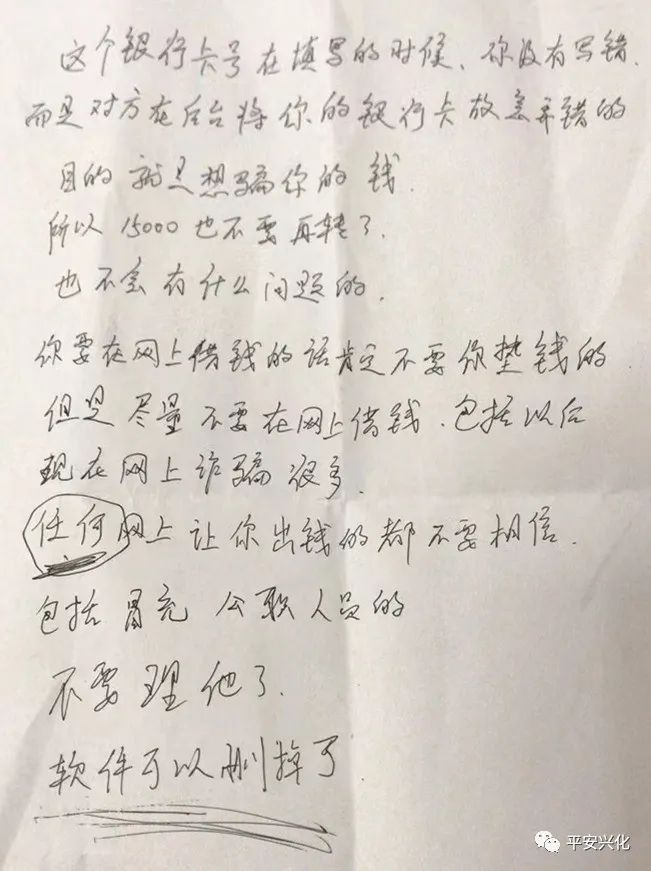 这个银行卡号在填写的时候、你没有写错.
而是对方在后台将你的银行卡故意弄错的
目的就是想骗你的钱.
所以15000也不要再转了.
也不会有什么问题的.
你要在网上借钱的话肯定不要你垫钱的
但是尽量不要在网上借钱.包括以后
现在网上诈骗很多.
任何网上让你出钱的都不要相信.
包括冒充公职人员的
不要理他了.
软件可以删掉了
平安兴化